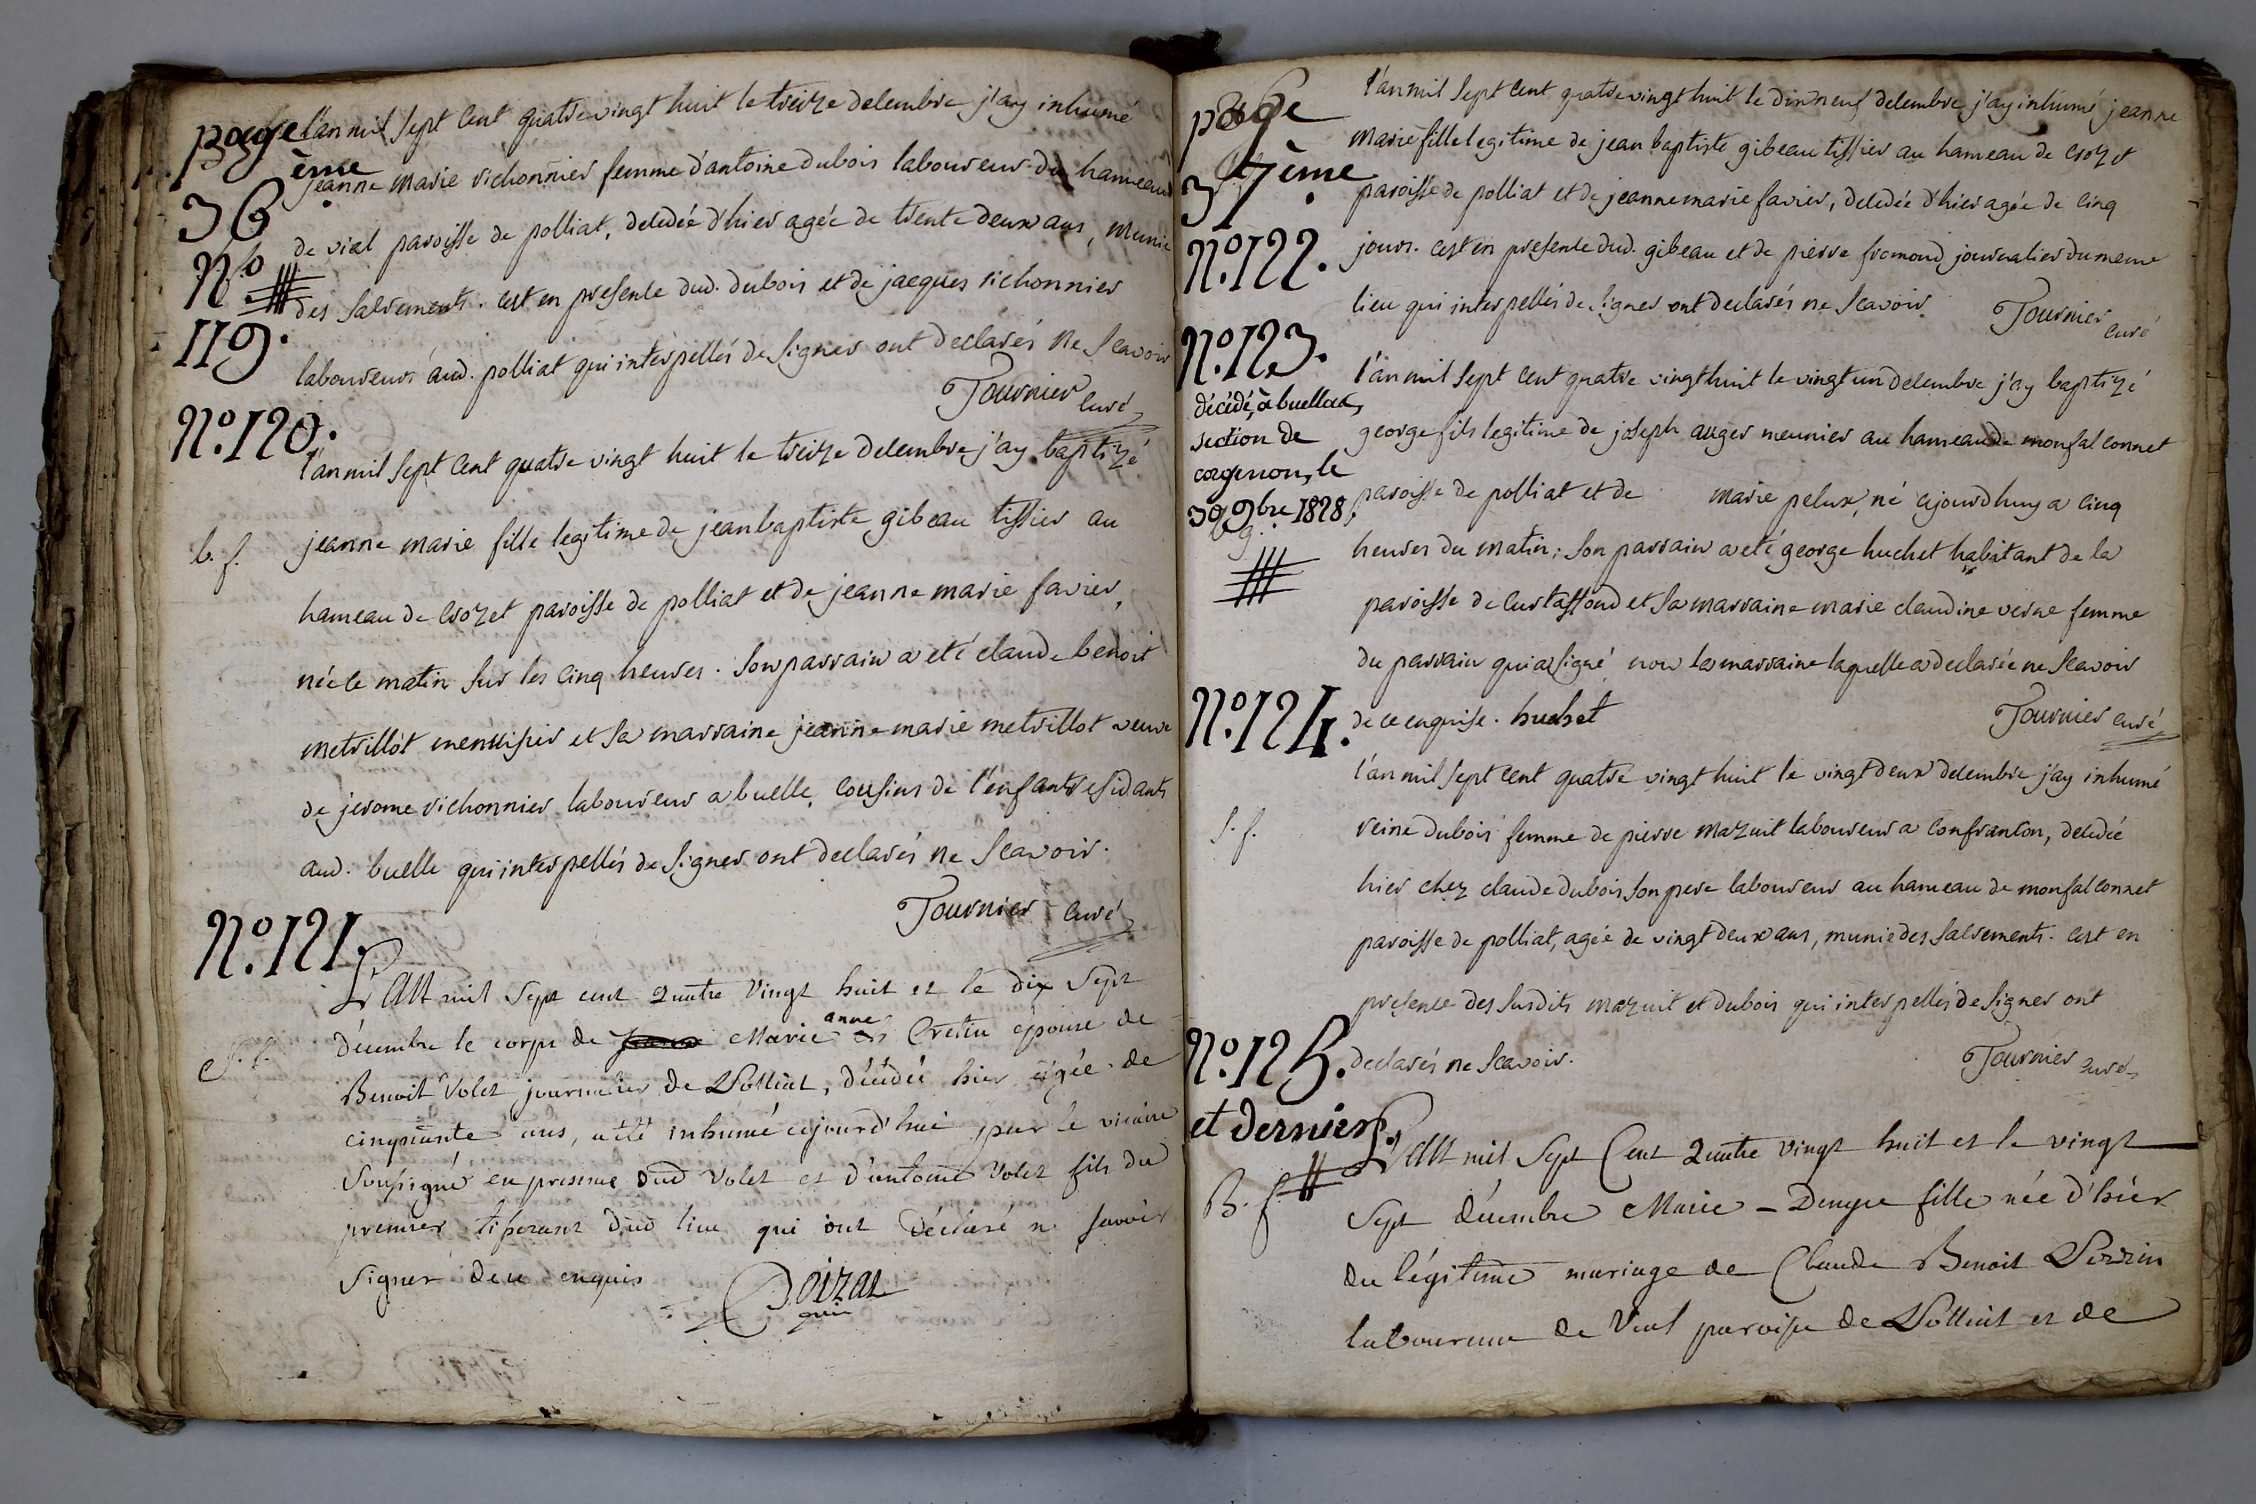 page
36 ème
N.o
119.
l'an mil sept cent quatre vingt huit le treize decembre j'ay inhumé
jeanne marie richonnier femme d'antoine dubois laboureur du hameau
de vial paroisse de polliat, decedée d'hier agée de trente deux ans, munie
des sacrements. c'est en presence dud. dubois et de jacques richonnier
laboureurs aud. polliat qui interpellés de signer ont declarés ne scavoir
Tournier curé
N.o 120.
b. f.
l'an mil sept cent quatre vingt huit le treize decembre j'ay baptizé
jeanne marie fille legitime de jean baptiste gibeau tissier au
hameau de crozet paroisse de polliat et de jeanne marie favier,
née le matin sur les cinq heures. son parrain a eté claude benoit
metrillot menuisier et sa marraine jeanne marie metrillot veuve
de jerome richonnier laboureur a buelle, cousins de l'enfant residants
aud. buelle qui interpellés de signer ont declarés ne scavoir.
Tournier curé
N.o 121.
S. f.
L'an mil sept cent quatre vingt huit et le dix sept
décembre le corps de Marie anne Cretin épouse de
Benoit Volet journalier de Polliat, décédée hier agée de
cinquante ans, a été inhumé cejourd'hui par le vicaire
soussigné en presence dud Volet et d'antoine Volet fils du
premier tisserant dud lieu qui ont déclaré ne savoir
signer de ce enquis
page
37 ème.
N.o 122.
l'an mil sept cent quatre vingt huit le dix neuf decembre j'ay inhumé jeanne
marie fille legitime de jean baptiste gibeau tissier au hameau de crozet
paroisse de polliat et de jeanne marie favier, decedée d'hier agée de cinq
jours. c'est en presence dud. gibeau et de pierre fromond journalier du meme
lieu qui interpellés de signer ont declarés ne scavoir.
Tournier curé
N.o 123.
décédé à buellas,
section de
corgenon, le
30 9bre 1828.
l'an mil sept cent quatre vingt huit le vingt un decembre j'ay baptizé
george fils legitime de joseph auger meunier au hameau de monfalconnet
paroisse de polliat et de marie pelux, né cejourd'huy a cinq
heures du matin; son parrain a eté george huchet habitant de la
paroisse de curtaffond et sa marraine marie claudine verne femme
du parrain qui a signé non la marraine laquelle a declarée ne scavoir
de ce enquise. huchet
Tournier curé
N.o 124.
S. f.
l'an mil sept cent quatre vingt huit le vingt deux decembre j'ay inhumé
reine dubois femme de pierre mazuit laboureur a confrancon, decedée
hier chez claude dubois son pere laboureur au hameau de monfalconnet
paroisse de polliat, agée de vingt deux ans, munie des sacrements. c'est en
presence des susdits mazuit et dubois qui interpellés de signer ont
declarés ne scavoir.
Tournier curé
N.o 125.
et dernier.
B. f.
L'an mil sept Cent quatre vingt huit et le vingt
sept décembre Marie - Denyse fille née d'hier
du légitime mariage de Claude Benoit Perrin
laboureur de Vial paroisse de Polliat et de